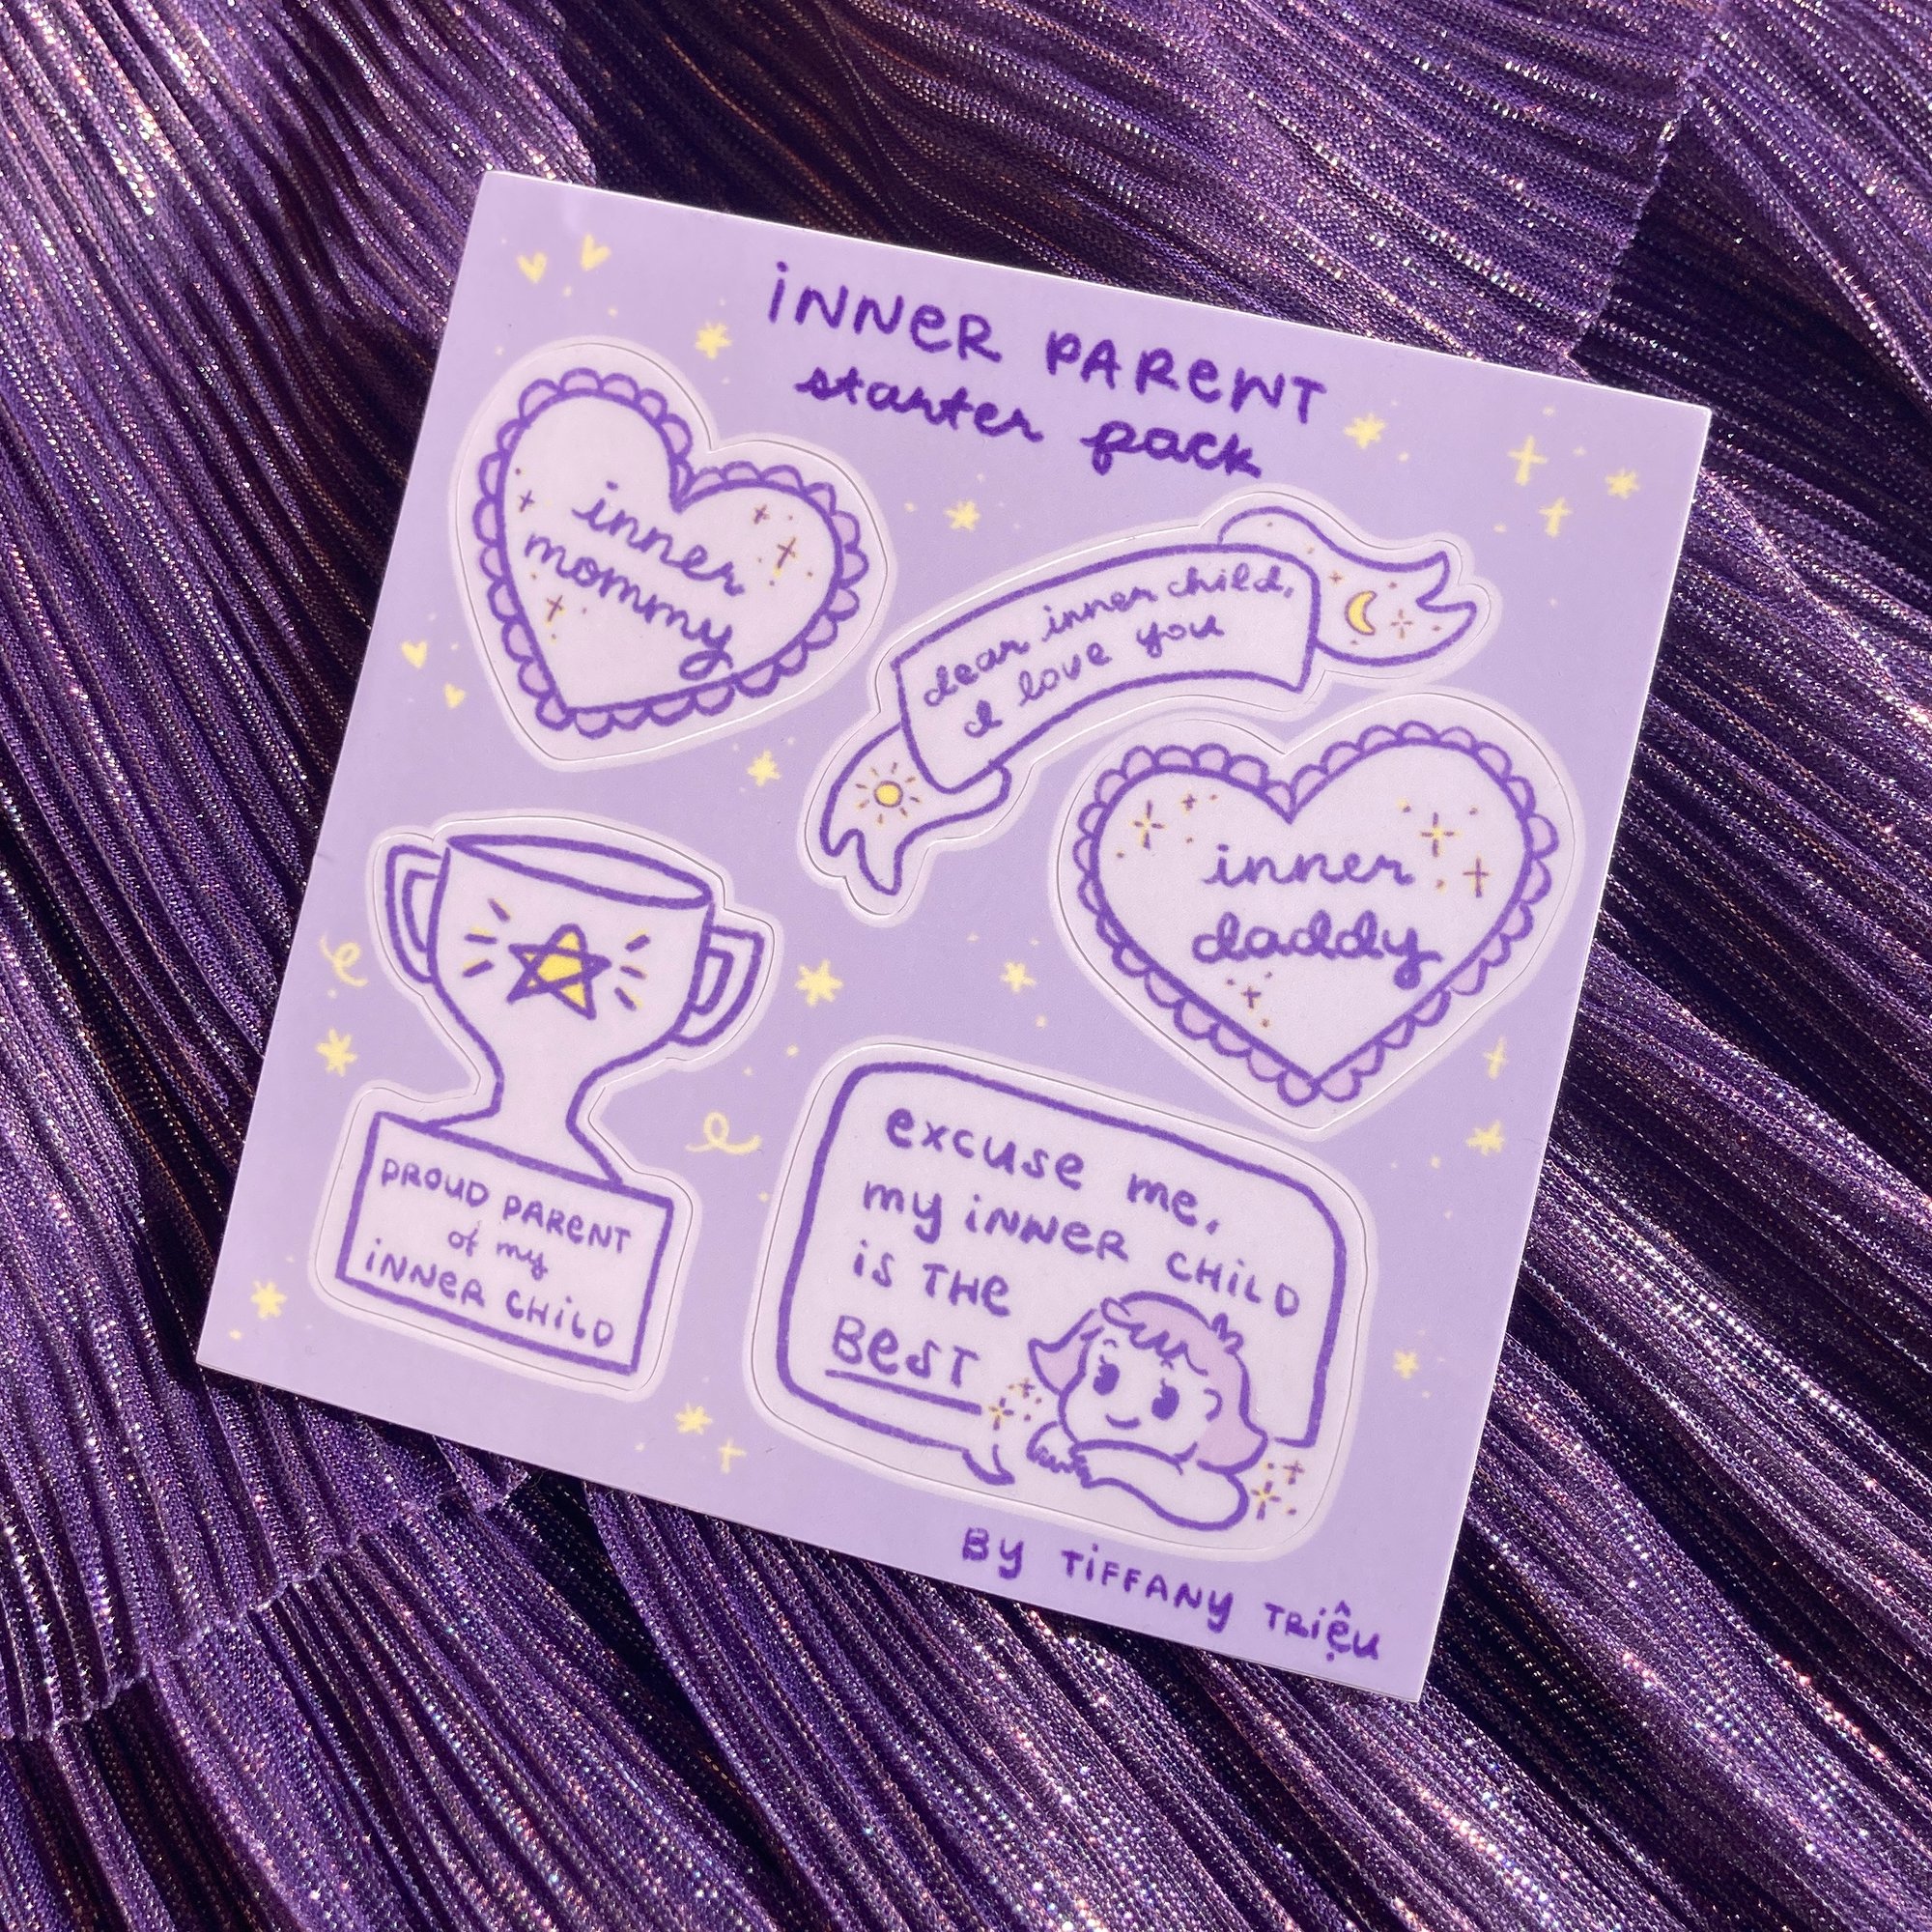 iNNeR PAReNT
starter pack
inner
mommy
dear inner child,
I love you
inner
daddy
PROUD PAReNT
of my
iNNeR CHiLD
excuse me,
my iNNeR CHiLD
is THe
BesT
By TiFFANy TRiệu